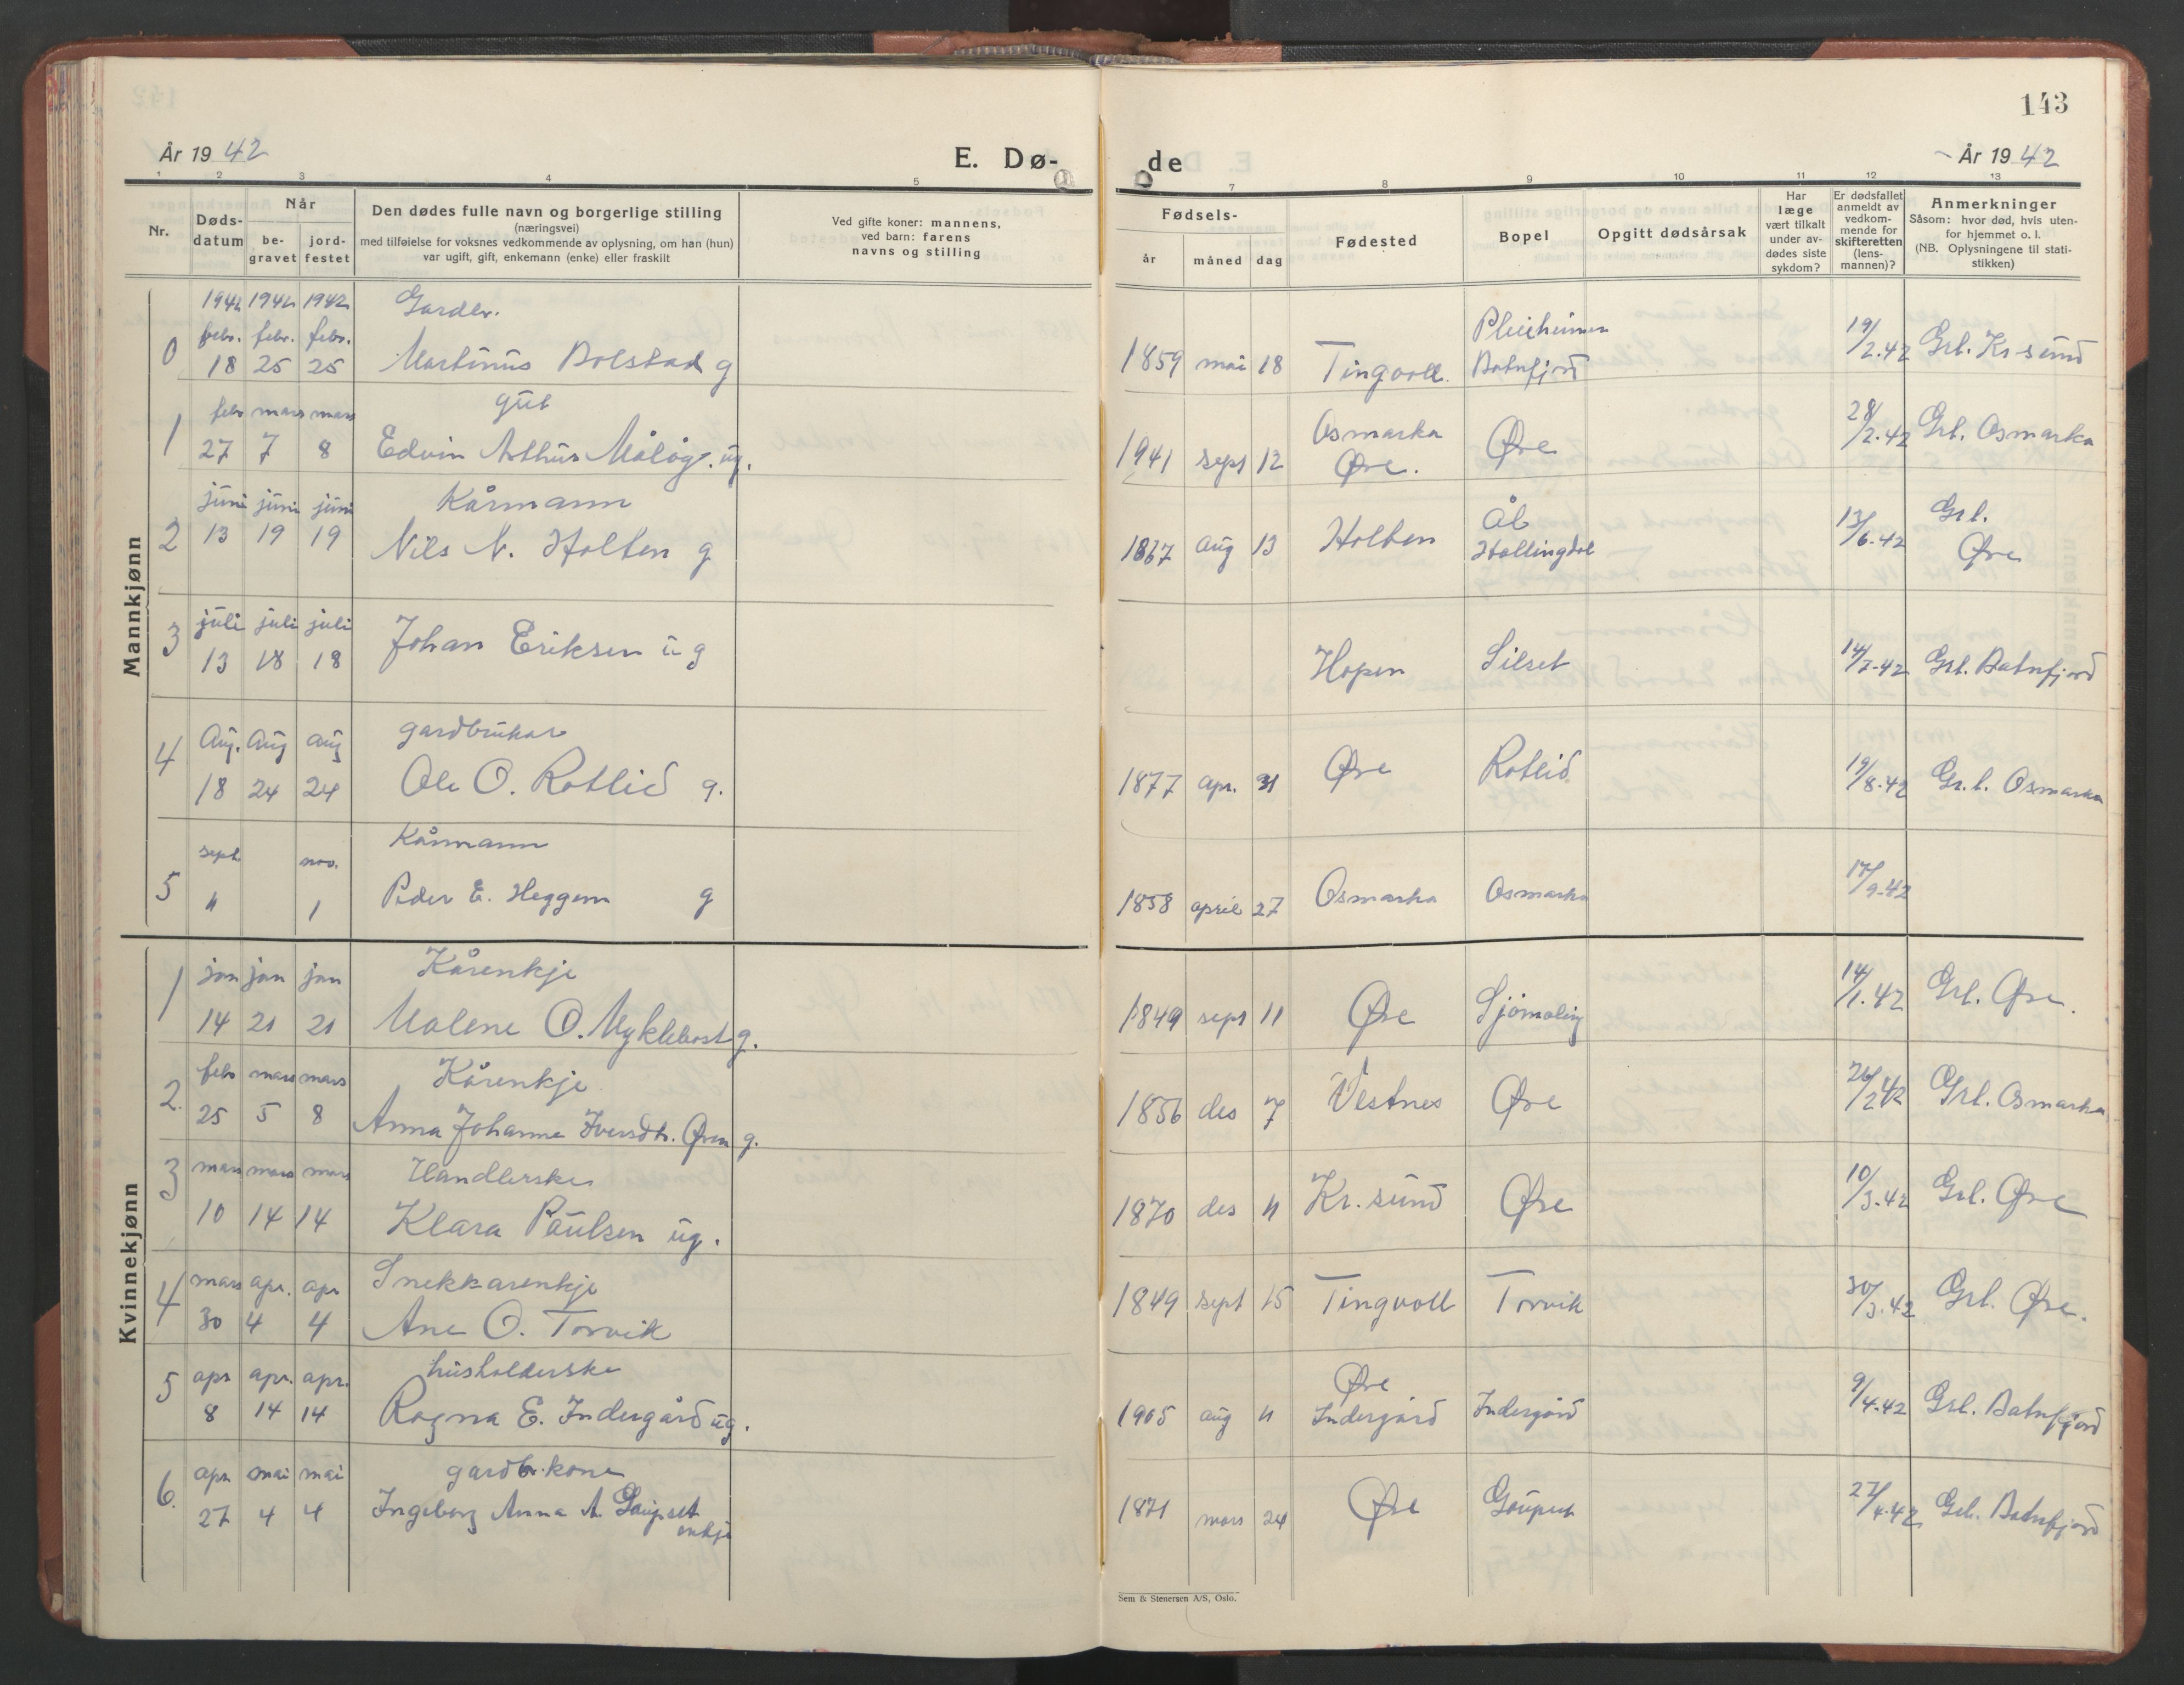 143
År 19 42
E. Dø-
de
År 19 42
1 2 3 4 5
7 8 9 10 11 12 13
Nr.
Døds-
datum
Når
be-
gravet
jord-
festet
Den dødes fulle navn og borgerlige stilling
(næringsvei)
med tilføielse for voksnes vedkommende av oplysning, om han (hun)
var ugift, gift, enkemann (enke) eller fraskilt
Ved gifte koner: mannens,
ved barn: farens
navns og stilling
Fødsels-
år måned dag
Fødested
Bopel
Opgitt dødsårsak
Har
læge
vært tilkalt
under av-
dødes siste
sykdom?
Er dødsfallet
anmeldt av
vedkom-
mende for
skifteretten
(lens-
mannen)?
Anmerkninger
Såsom: hvor død, hvis uten-
for hjemmet o. l.
(NB. Oplysningene til stati-
stikken)
Mannkjønn
1942 1942 1942 Gardbr.
febr. febr. febr.
0 18 25 25 Martinus Bolstad g
1859 mai 18 Tingvoll Pleieheimen
Batnfjord 19/2.42 Grl. Kr-sund
febr mars mars gut
1 27 7 8 Edvin Arthur Måløy. ug.
1941 sept 12 Osmarka
Øre. Øre 28/2.42 Grl. Osmarka
juni juni juni Kårmann
2 13 19 19 Nils N. Holten g
1867 aug 13 Holten Ål
Hallingdal 13/6.42 Grl.
Øre
juli juli juli
3 13 18 18 Johan Eriksen ug
Hopen Silset 14/7-42 Grl. Batnfjord
Aug. Aug aug gardbrukar
4 18 24 24 Ole O. Rotlid g.
1877 apr. Øre Rotlid 19/8.42 Gr.l. Osmarka
sept. nov. Kårmann
5 11 1 Peder E. Heggem g
1858 april 27 Osmarka Osmarka 17/9-42
Kvinnekjønn
jan jan jan Kårenkje
1 14 21 21 Malene O. Myklebost g.
1849 sept 11 Øre Sjømoling 14/1.42 Grl. Øre.
febr mars mars Kårenkje
2. 25 5 8 Anna Johanne Iversdtr. Øren g.
1856 des 7 Vestnes Øre 26/2 42 Grl. Osmarka
mars mars mars Handlerske
3 10 14 14 Klara Paulsen ug.
1870 des 11 Kr. sund Øre 10/3.42 Grl. Øre
mars apr. apr Snekkarenkje
4 30 4 4 Ane O. Torvik
1849 sept 15 Tingvoll Torvik 30/3.42 Grl. Øre.
apr apr. apr. husholderske
5 8 14 14 Ragna E. Indergård ug.
1905 aug 11 Øre
Indergård Indergård 9/4.42 Grl. Batnfjord
apr mai mai gardbr. kone
6. 27 4 4 Ingeborg Anna A. Gaupset
enkje
1871 mars 24 Øre Gaupset 27/4.42 Grl. Batnfjord
Sem & Stenersen A/S, Oslo.